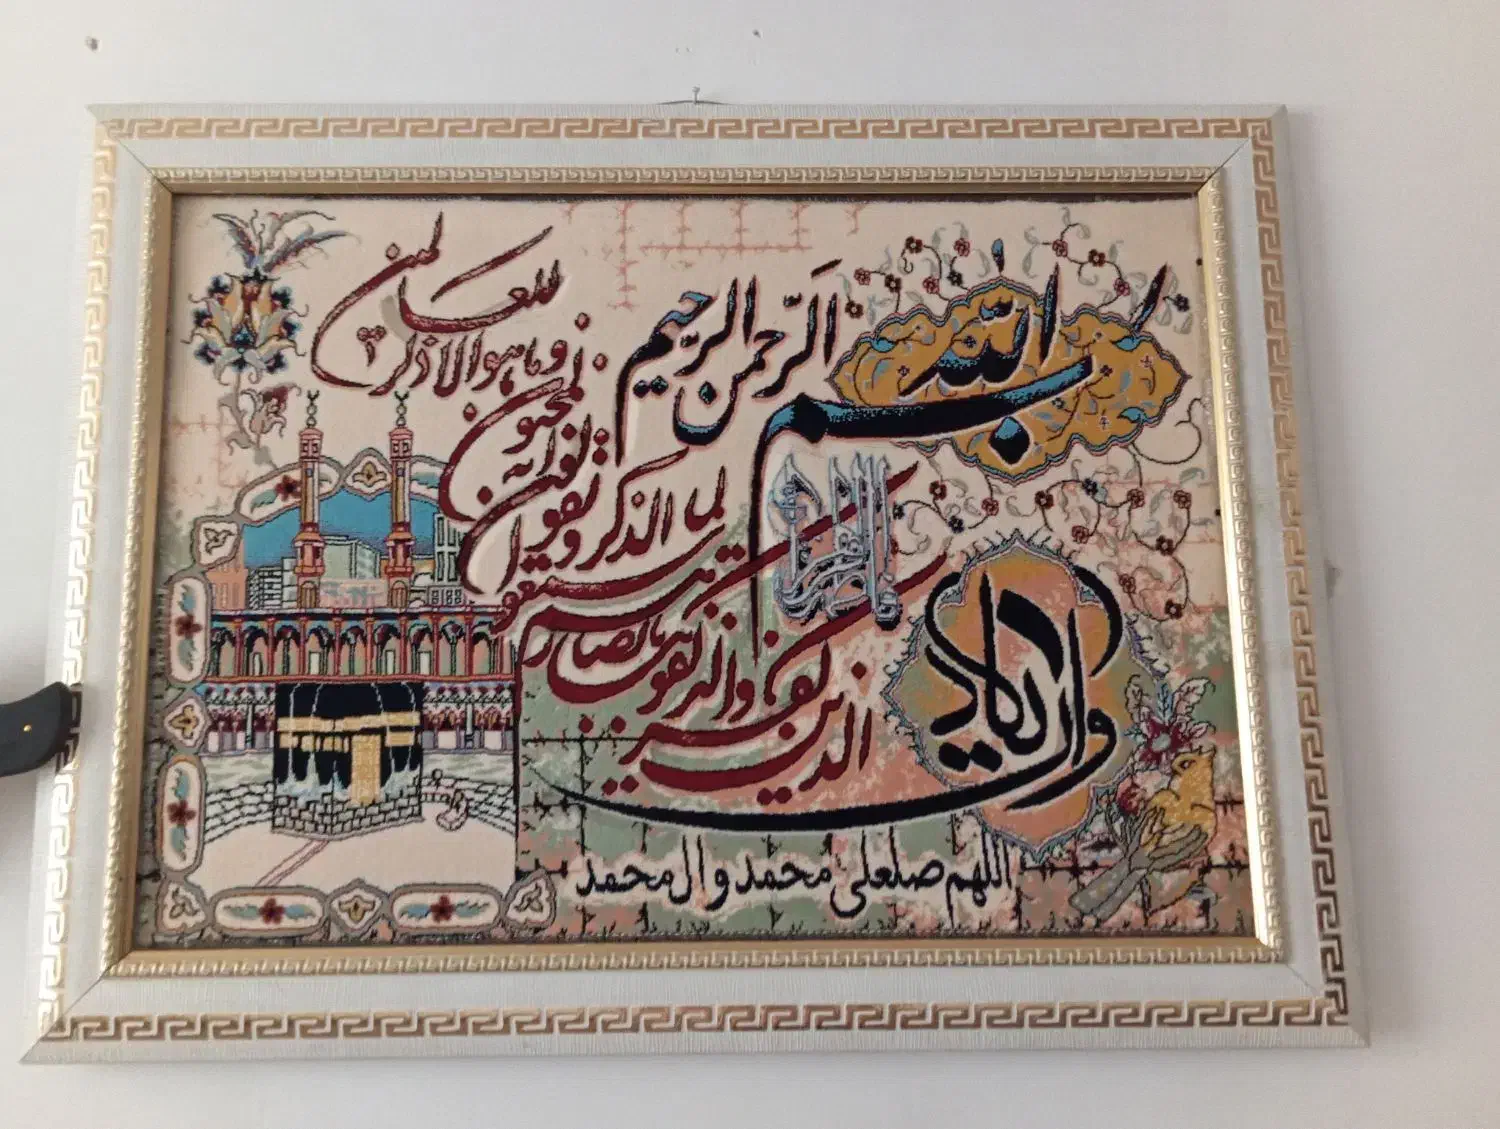 بسم الله الرحمن الرحیم
وان یکاد
الذین کفروا لیزلقونک بابصارهم
لما سمعوا الذکر و یقولون
انه لمجنون
و ما هو الا ذکر
للعالمین
اللهم صل علی محمد و ال محمد